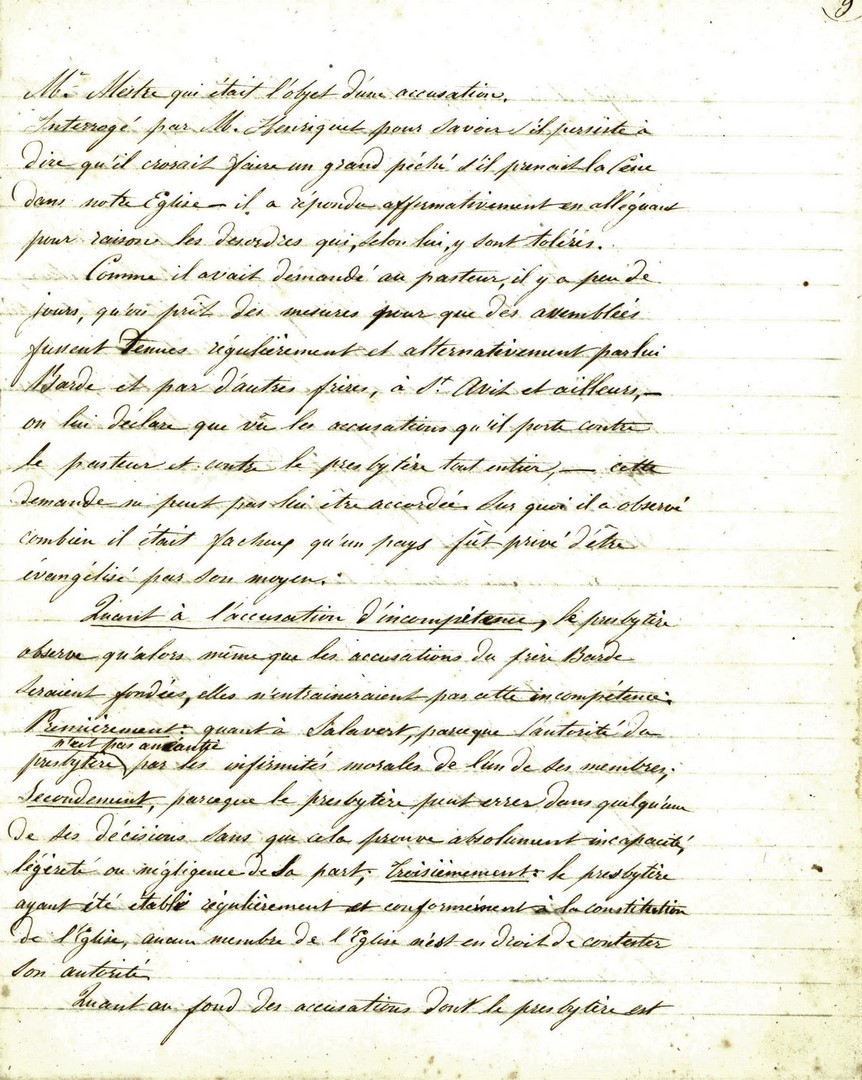 9
Mr. Mestre qui était l'objet d'une accusation.
Interrogé par M. Henriquet pour savoir s'il persiste à
dire qu'il croirait faire un grand péché s'il prenait la Cène
dans notre Eglise — il a répondu affirmativement en alléguant
pour raison les desordres qui, selon lui, y sont tolérés.
Comme il avait demandé au pasteur, il y a peu de
jours, qu'on prît des mesures pour que des assemblées
fussent tenues régulièrement et alternativement par lui
Barde et par d'autres frères, à St Avit et ailleurs, —
on lui déclare que vû les accusations qu'il porte contre
le pasteur et contre le presbytère tout entier, — cette
demande ne peut pas lui être accordée. Sur quoi il a observé
combien il était facheux qu'un pays fût privé d'être
évangélisé par son moyen.
Quant à l'accusation d'incompétence, le presbytère
observe qu'alors même que les accusations du frère Barde
seraient fondées, elles n'entraineraient pas cette incompétence.
Premièrement: quant à Salavert, parceque l'autorité du
n'est pas anéantie
presbytère par les infirmités morales de l'un de ses membres;
Secondement, parceque le presbytère peut errer dans quelqu'une
de ses décisions sans que cela prouve absolument incapacité,
légèreté ou négligence de sa part; troisièmement: le presbytère
ayant été établi régulièrement et conformément à la constitution
de l'Eglise, aucun membre de l'Eglise n'est en droit de contester
son autorité.
Quant au fond des accusations dont le presbytère est